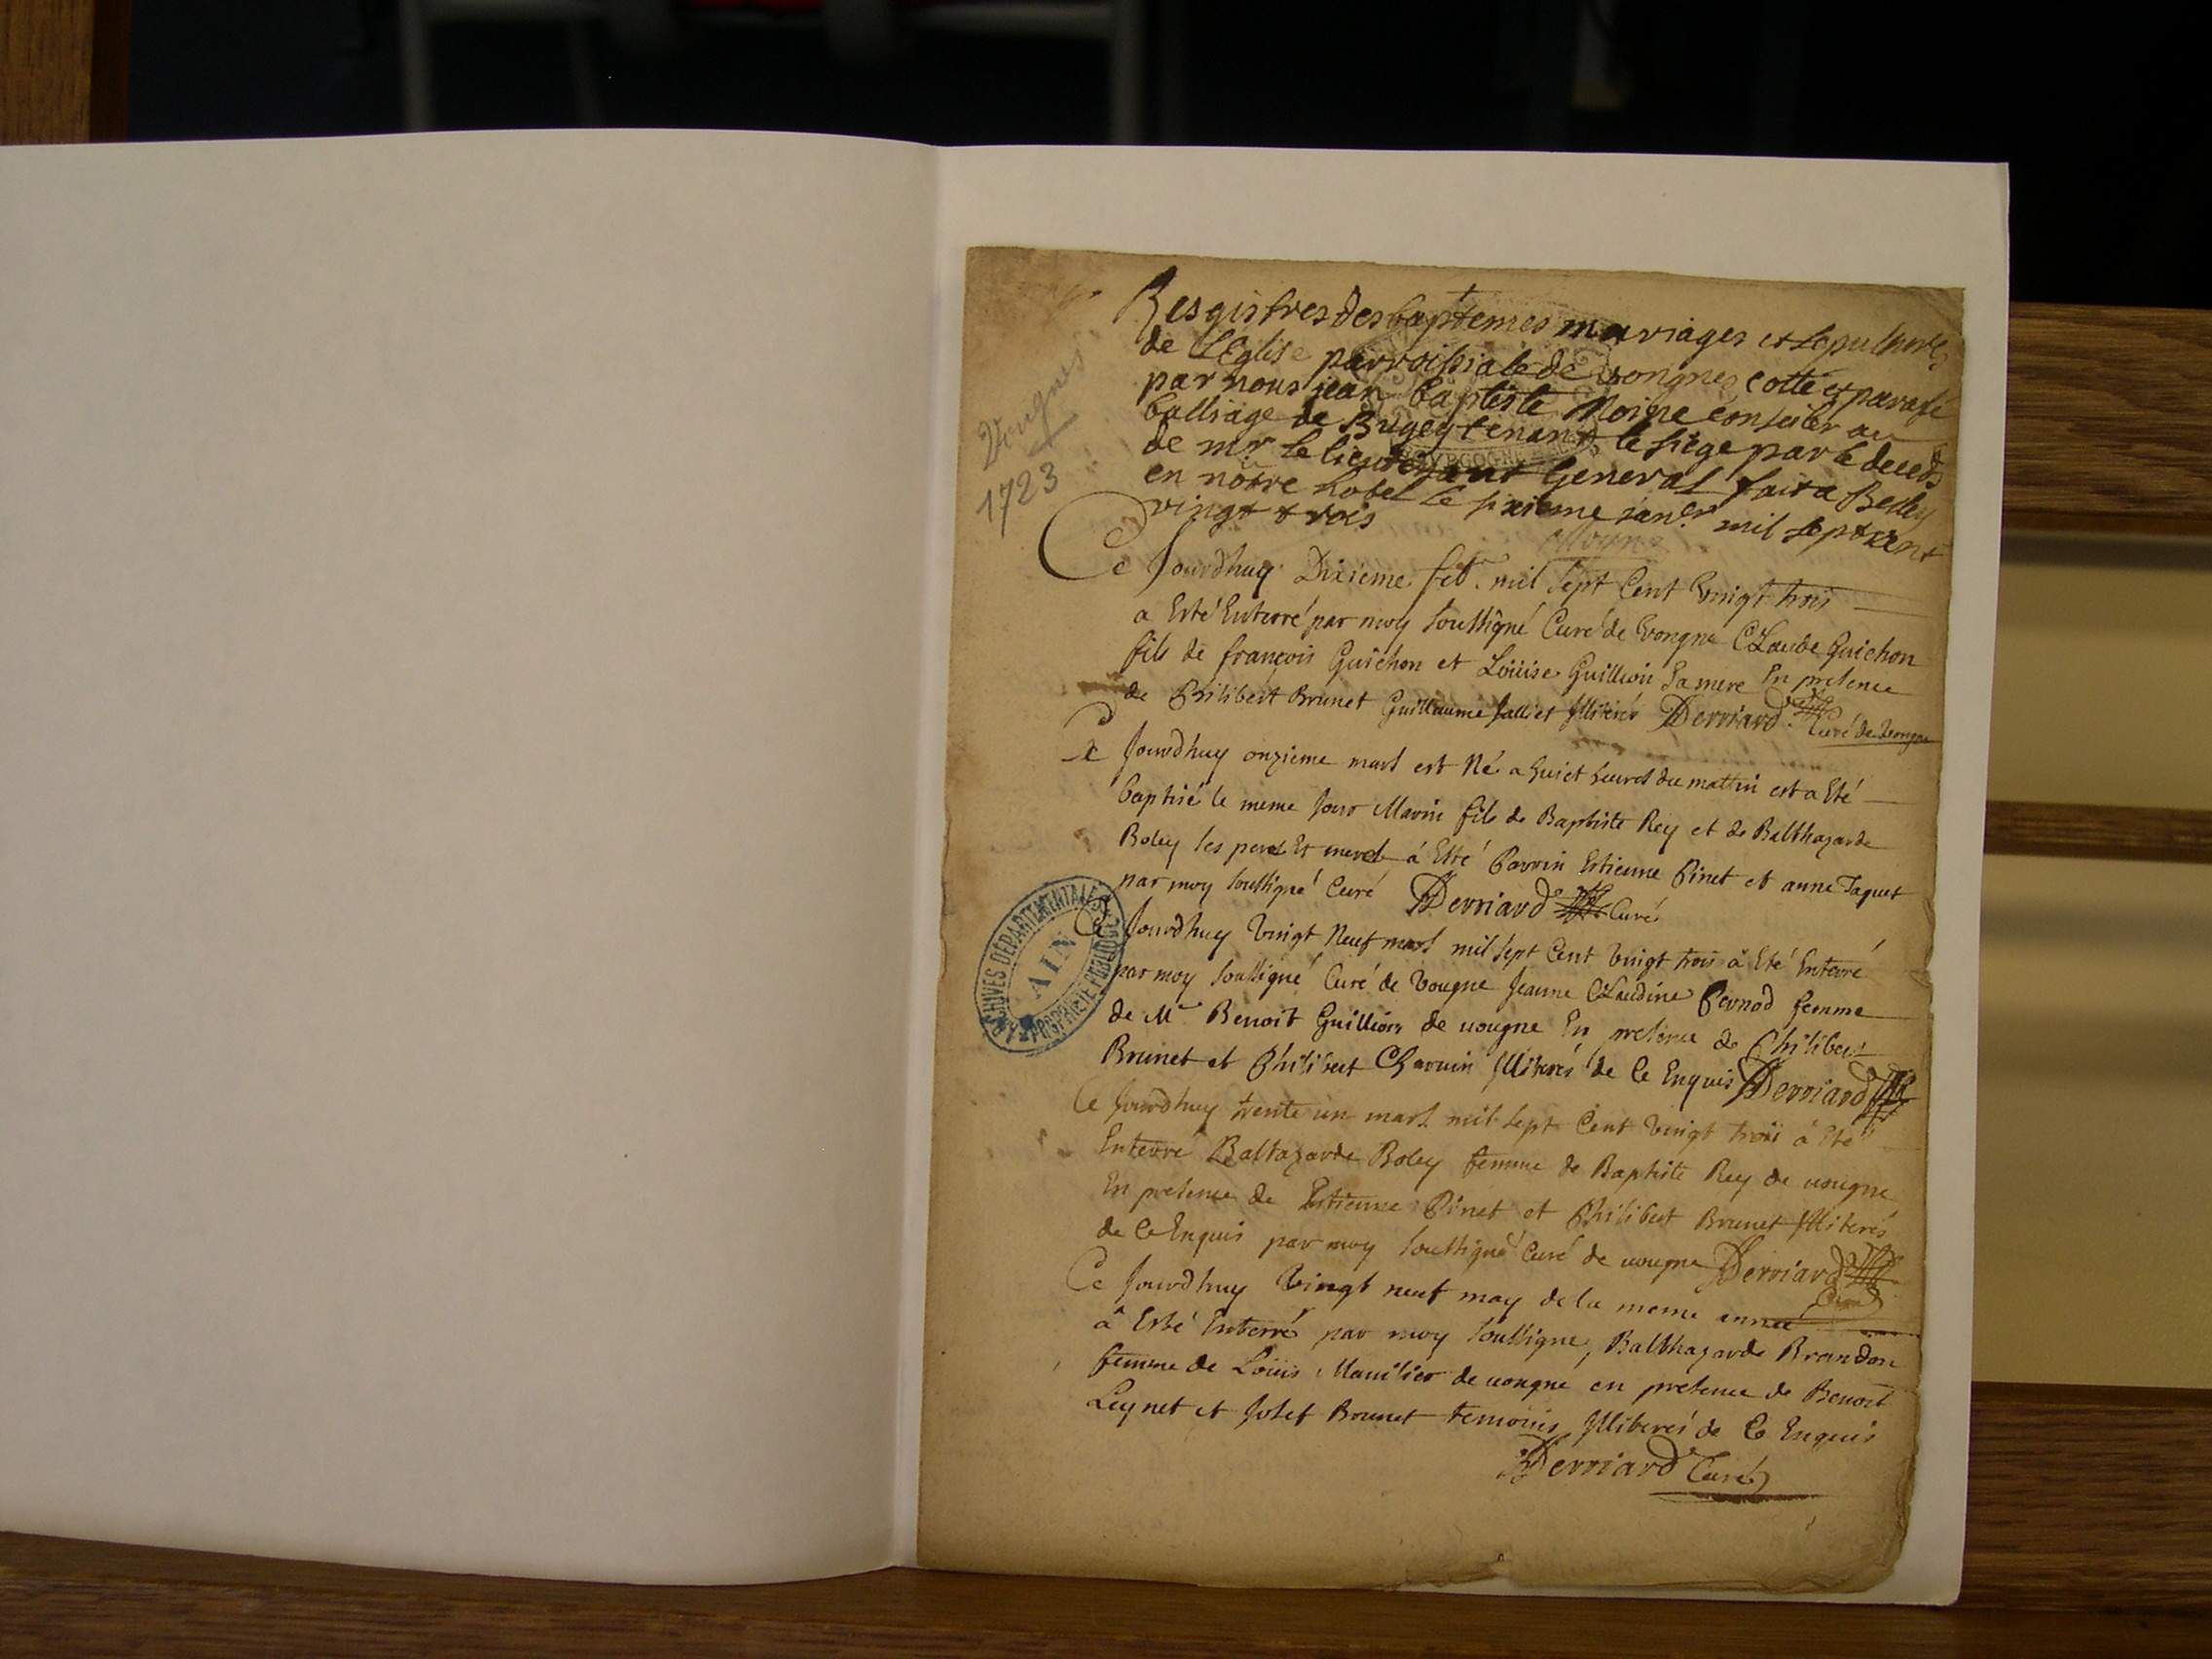 Vongnes
1723
Resgistres des baptemes mariages et sepultures
de L'Eglise parroissiale de vongnes cotté et parafé
par nous jean baptiste Moine conseiller au
balliage de Bugey tenant le siege par le deceds
de mr. le lieutenant General fait a Belley
en notre hotel le sixieme janer mil sept cent
vingt trois
Ce Jourdhuy Dixieme feb. mil sept Cent Vingt trois
a Esté Enterré par moy soussigné Curé de Vongne Claude Guichon
fils de françois Guichon et Loüise Guillion sa mere En presence
de Philibert Brunet Guillaume Jalliet Illiterés Derriard Curé de Vongne
Ce Jourdhuy onzieme mars est Né a huict heures du mattin est a Eté
baptisé le meme Jour Marin fils de Baptiste Rey et de Balthazarde
Boley ses peres Et meres á Etté Parrin Estienne Pinet et anne Jaquet
par moy soussigné Curé Derriard Curé
Ce Jourdhuy Vingt Neuf mars mil sept Cent Vingt trois â Eté Enterré
par moy soussigné Curé de Vougne Jeanne Claudine Pernod femme
de Mr Benoit Guillion de vougne En presence de Philibert
Brunet et Philibert Charvin Illiterés de Ce Enquis Derriard
Ce Jourdhuy trente un mars mil sept Cent Vingt trois á Eté
Enterré Baltazarde Boley femme de Baptiste Rey de vougne
En presence de Estienne Pinet et Philibert Brunet Illiterés
de Ce Enquis par moy soussigné Curé de vougne Derriard Curé
Ce Jourdhuy Vingt neuf may de la meme année
â Esté Enterré par moy soussigne, Balthazarde Brandon
femme de Loüis Mauilier de vongne en presence de Benoit
Leynet et Josef Brunet temoins Illiterés de Ce Enquis
Derriard Curé
ARCHIVES DÉPARTEMENTALES
AIN
PROPRIÉTÉ PUBLIQUE